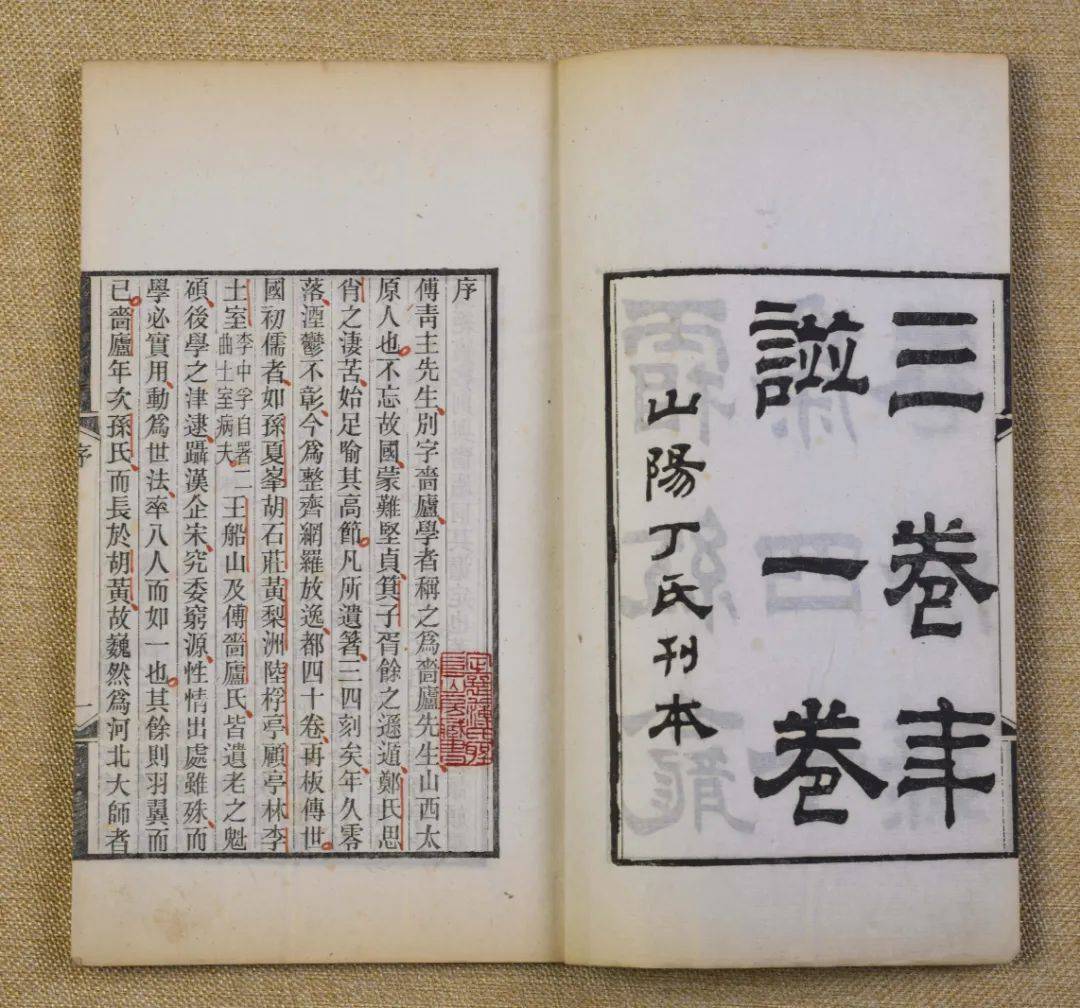 三卷年
諩一卷
山陽丁氏刊本
序
傅青主先生別字嗇廬學者稱之爲嗇廬先生山西太
原人也不忘故國蒙難堅貞箕子胥餘之遜遁鄭氏思
肖之淒苦始足喻其高節凡所遺箸三四刻矣年久零
落湮鬱不彰今爲整齊網羅放逸都四十卷再板傳世
國初儒者如孫夏峯胡石莊黃梨洲陸桴亭顧亭林李
土室李中孚自署二曲土室病夫王船山及傅嗇廬氏皆遺老之魁
碩後學之津逮躡漢企宋究委窮源性情出處雖殊而
學必實用動爲世法率八人而如一也其餘則羽翼而
已嗇廬年次孫氏而長於胡黃故巍然爲河北大師者
序
一